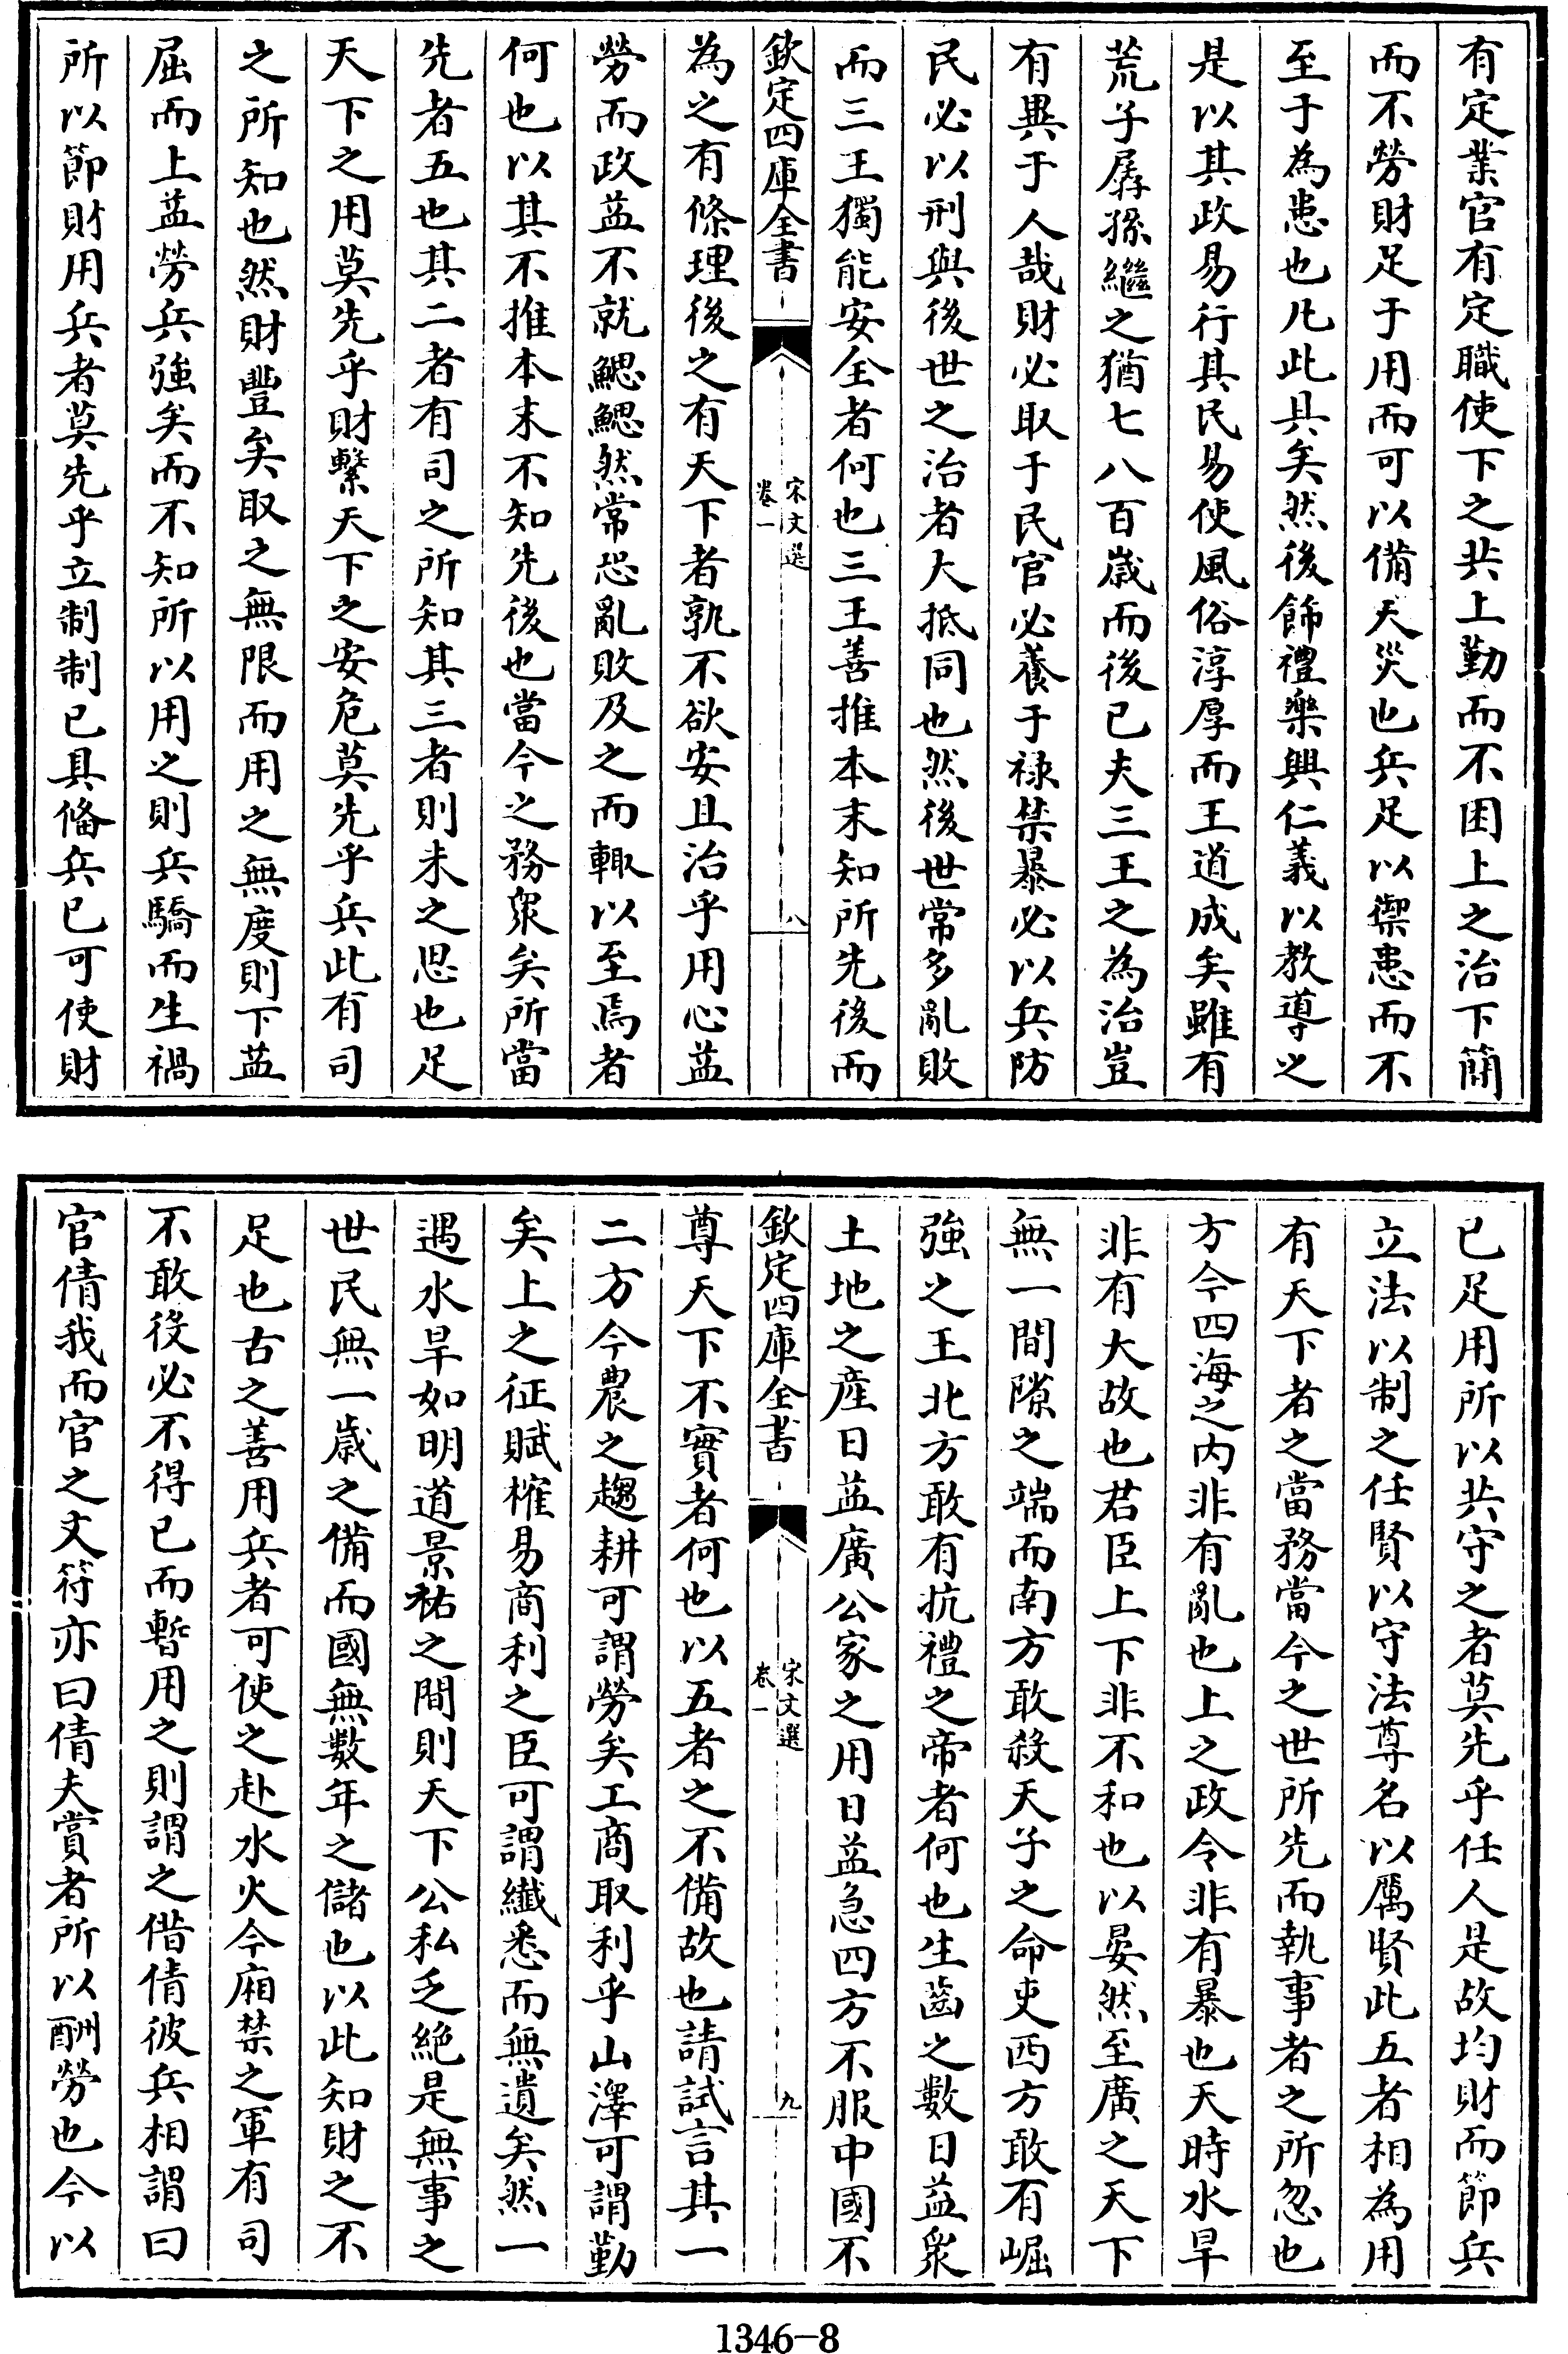 有定業官有定職使下之共上勤而不困上之治下簡
而不勞財足于用而可以備天災也兵足以禦患而不
至于為患也凡此具矣然後飾禮樂興仁義以教導之
是以其政易行其民易使風俗淳厚而王道成矣雖有
荒子孱孫繼之猶七八百歲而後已夫三王之為治豈
有異于人哉財必取于民官必養于祿禁暴必以兵防
民必以刑與後世之治者大抵同也然後世常多亂敗
而三王獨能安全者何也三王善推本末知所先後而
欽定四庫全書
宋文選
卷一
八
為之有條理後之有天下者孰不欲安且治乎用心益
勞而政益不就鰓鰓然常恐亂敗及之而輒以至焉者
何也以其不推本末不知先後也當今之務衆矣所當
先者五也其二者有司之所知其三者則未之思也足
天下之用莫先乎財繫天下之安危莫先乎兵此有司
之所知也然財豐矣取之無限而用之無度則下益
屈而上益勞兵強矣而不知所以用之則兵驕而生禍
所以節財用兵者莫先乎立制制已具備兵已可使財
已足用所以共守之者莫先乎任人是故均財而節兵
立法以制之任賢以守法尊名以厲賢此五者相為用
有天下者之當務當今之世所先而執事者之所忽也
方今四海之内非有亂也上之政令非有暴也天時水旱
非有大故也君臣上下非不和也以晏然至廣之天下
無一間隙之端而南方敢殺天子之命吏西方敢有崛
強之王北方敢有抗禮之帝者何也生齒之數日益衆
土地之產日益廣公家之用日益急四方不服中國不
欽定四庫全書
宋文選
卷一
九
尊天下不實者何也以五者之不備故也請試言其一
二方今農之趨耕可謂勞矣工商取利乎山澤可謂勤
矣上之征賦榷易商利之臣可謂纖悉而無遺矣然一
遇水旱如明道景祐之間則天下公私乏絶是無事之
世民無一歲之備而國無數年之儲也以此知財之不
足也古之善用兵者可使之赴水火今廂禁之軍有司
不敢役必不得已而暫用之則謂之借倩彼兵相謂曰
官倩我而官之文符亦曰倩夫賞者所以酬勞也今以
1346-8